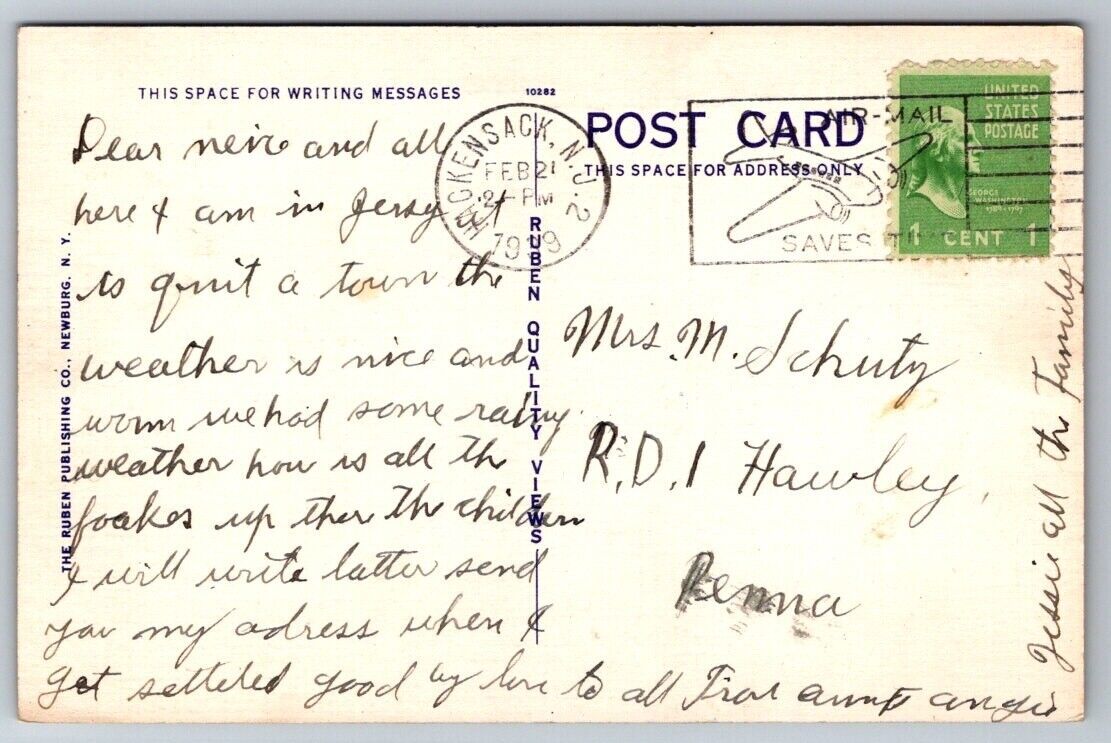 THIS SPACE FOR WRITING MESSAGES
10282
POST CARD
THIS SPACE FOR ADDRESS ONLY
HACKENSACK, N.J. 2
FEB 21
2- PM
1939
AIR-MAIL
SAVES TI
UNITED
STATES
POSTAGE
GEORGE
WASHINGTON
1789-1797
1 CENT 1
THE RUBEN PUBLISHING CO., NEWBURG, N. Y.
RUBEN QUALITY VIEWS
Dear neice and all
here I am in Jersy it
is quit a town the
weather is nice and
worm we had some rainy
weather how is all the
foakes up ther the children
I will write latter send
you my adress when I
get setteled good by love to all From aunt angie
Jessie all the Family
Mrs. M. Schutz
R.D. 1 Hawley,
Penna